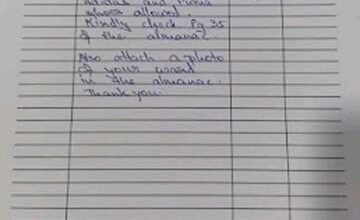 and
shoes allowed.
Kindly check Pg 35
of the almanac.
Also attach a photo
of your ward
in the almanac.
Thank you.